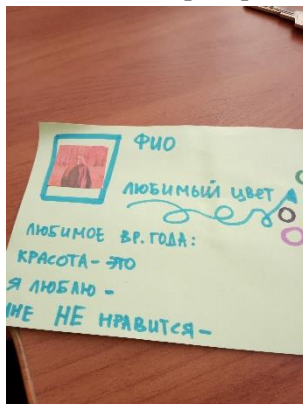 ФИО
ЛЮБИМЫЙ ЦВЕТ
ЛЮБИМОЕ ВР. ГОДА:
КРАСОТА - ЭТО
Я ЛЮБЛЮ -
МНЕ НЕ НРАВИТСЯ -